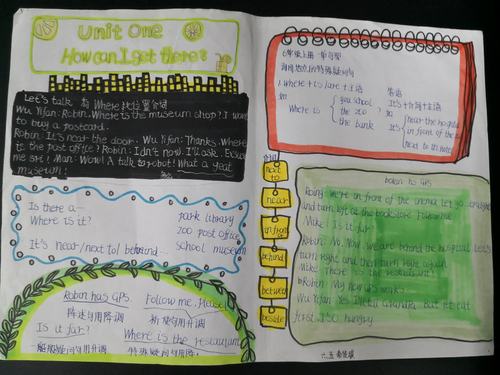 Unit One
How can I get there?
Let's talk 有 Where 找位置
Wu Yifan: Robin, Where is the museum shop? I want
to buy a postcard.
Robin: It's near the door. Wu Yifan: Thanks. Where
is the post office? Robin: I don't now. I'll ask. Excuse
me sir! Man: Wow! A talking robot! What a great
museum!
Is there a...
Where is it?
It's near/next to/ behind...
park library
zoo post office
school museum
Robin has GPS
陈述句用降调
Is it far?
一般疑问句用升调
Follow me, Please!
祈使句用降调
Where is the restaurant
特殊疑问句用降调
6年级上册一单句型
询问地点的特殊疑问句
1. Where is 主语
如
Where is
your school
the zoo
the bank
答语
It's 十方向十主语
如
It's
near the hospital
in front of the
next to
next
to
near
in front
behind
between
beside
Robin has GPS
Robin: We're in front of the cinema. Let's go straight
and turn left at the bookstore. Follow me
Mike: Is it far?
Robin: No. Now we are behind the hospital. Let's
turn right and then turn right again
Mike: There is the restaurant!
Robin: My new GPS works.
Wu Yifan: Yes I'll tell Grandpa. But let eat
first. I so hungry
六.五